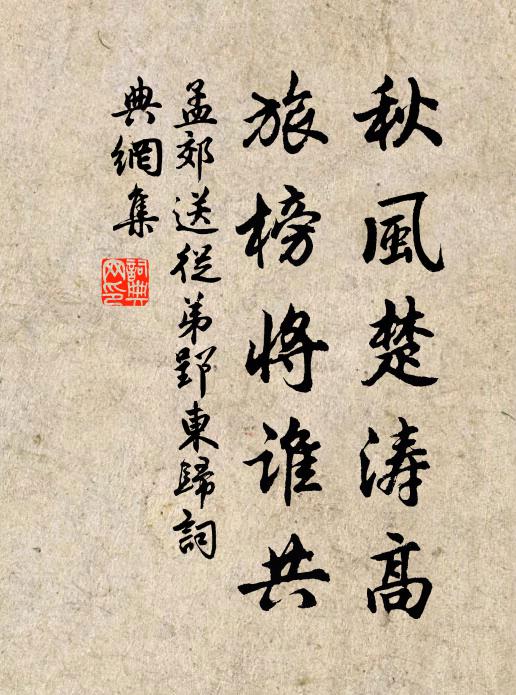 秋風楚涛高
旅榜將誰共
孟郊送從弟郢東歸詞
典網集
詞典
网印